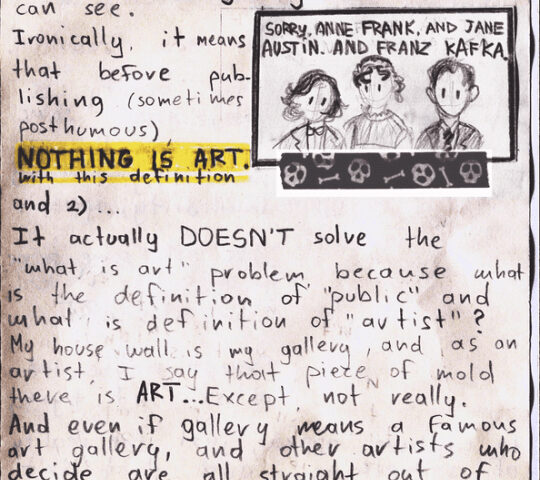 can see.
Ironically, it means
that before pub-
lishing (sometimes
posthumous)
NOTHING IS ART.
with this definition
and 2)...
SORRY, ANNE FRANK, AND JANE
AUSTIN. AND FRANZ KAFKA.
It actually DOESN'T solve the
"what is art" problem because what
is the definition of "public" and
what is definition of "artist"?
My house wall is my gallery, and as an
artist, I say that piece of mold
there is ART...Except, not really.
And even if gallery means a famous
art gallery, and other artists who
decide are all straight out of